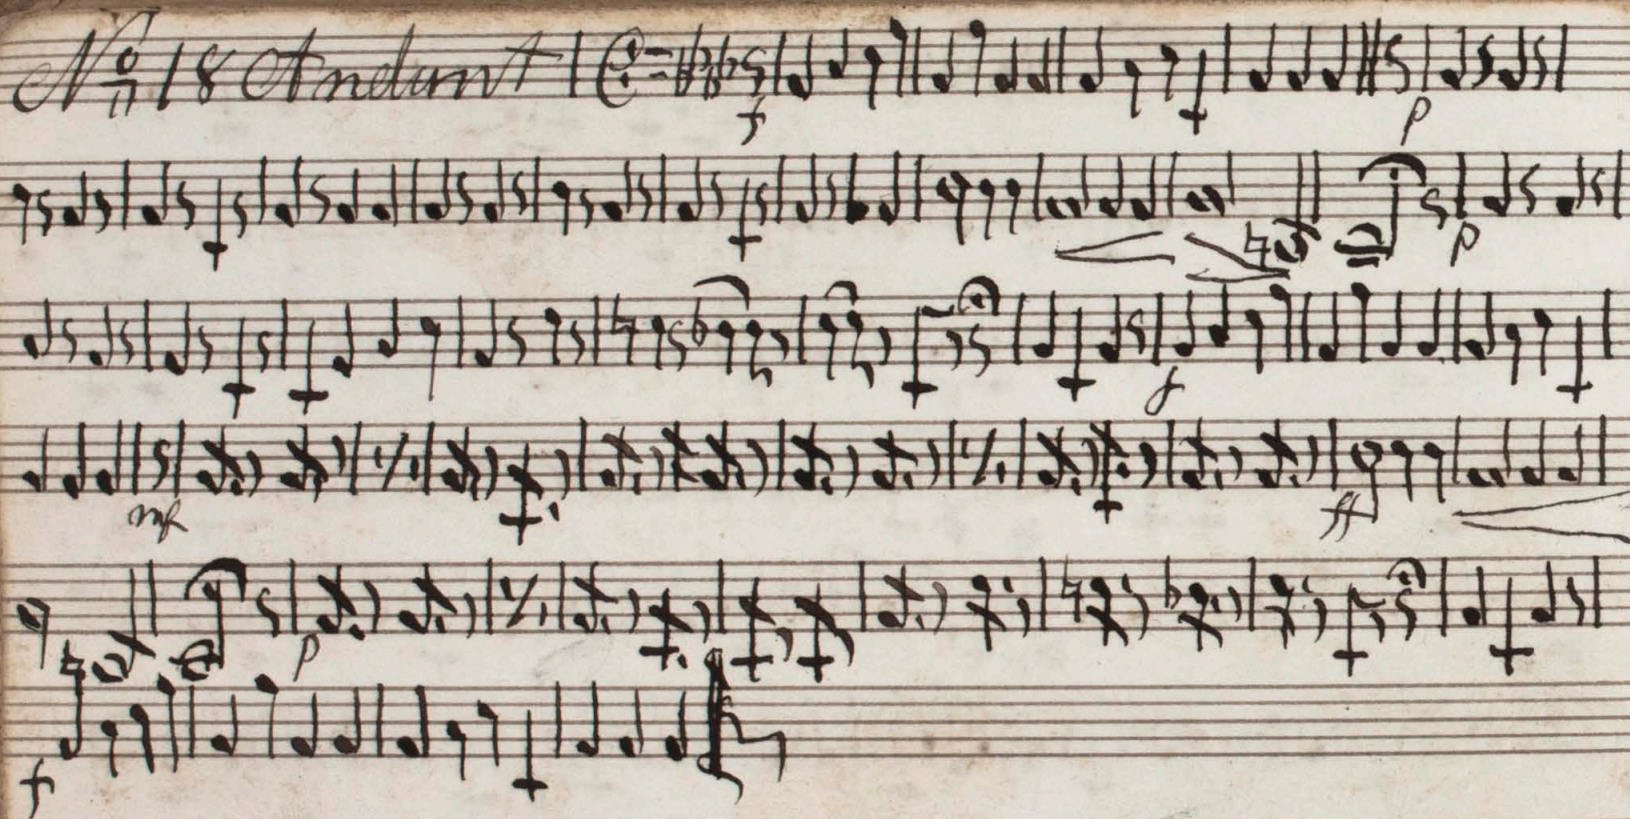 No 18 Andant
f p
p
f
mf ff
p
f